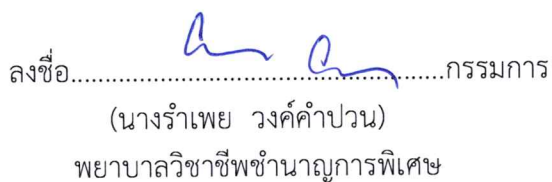 ลงชื่อ.......................................................กรรมการ
(นางรำเพย วงค์คำปวน)
พยาบาลวิชาชีพชำนาญการพิเศษ